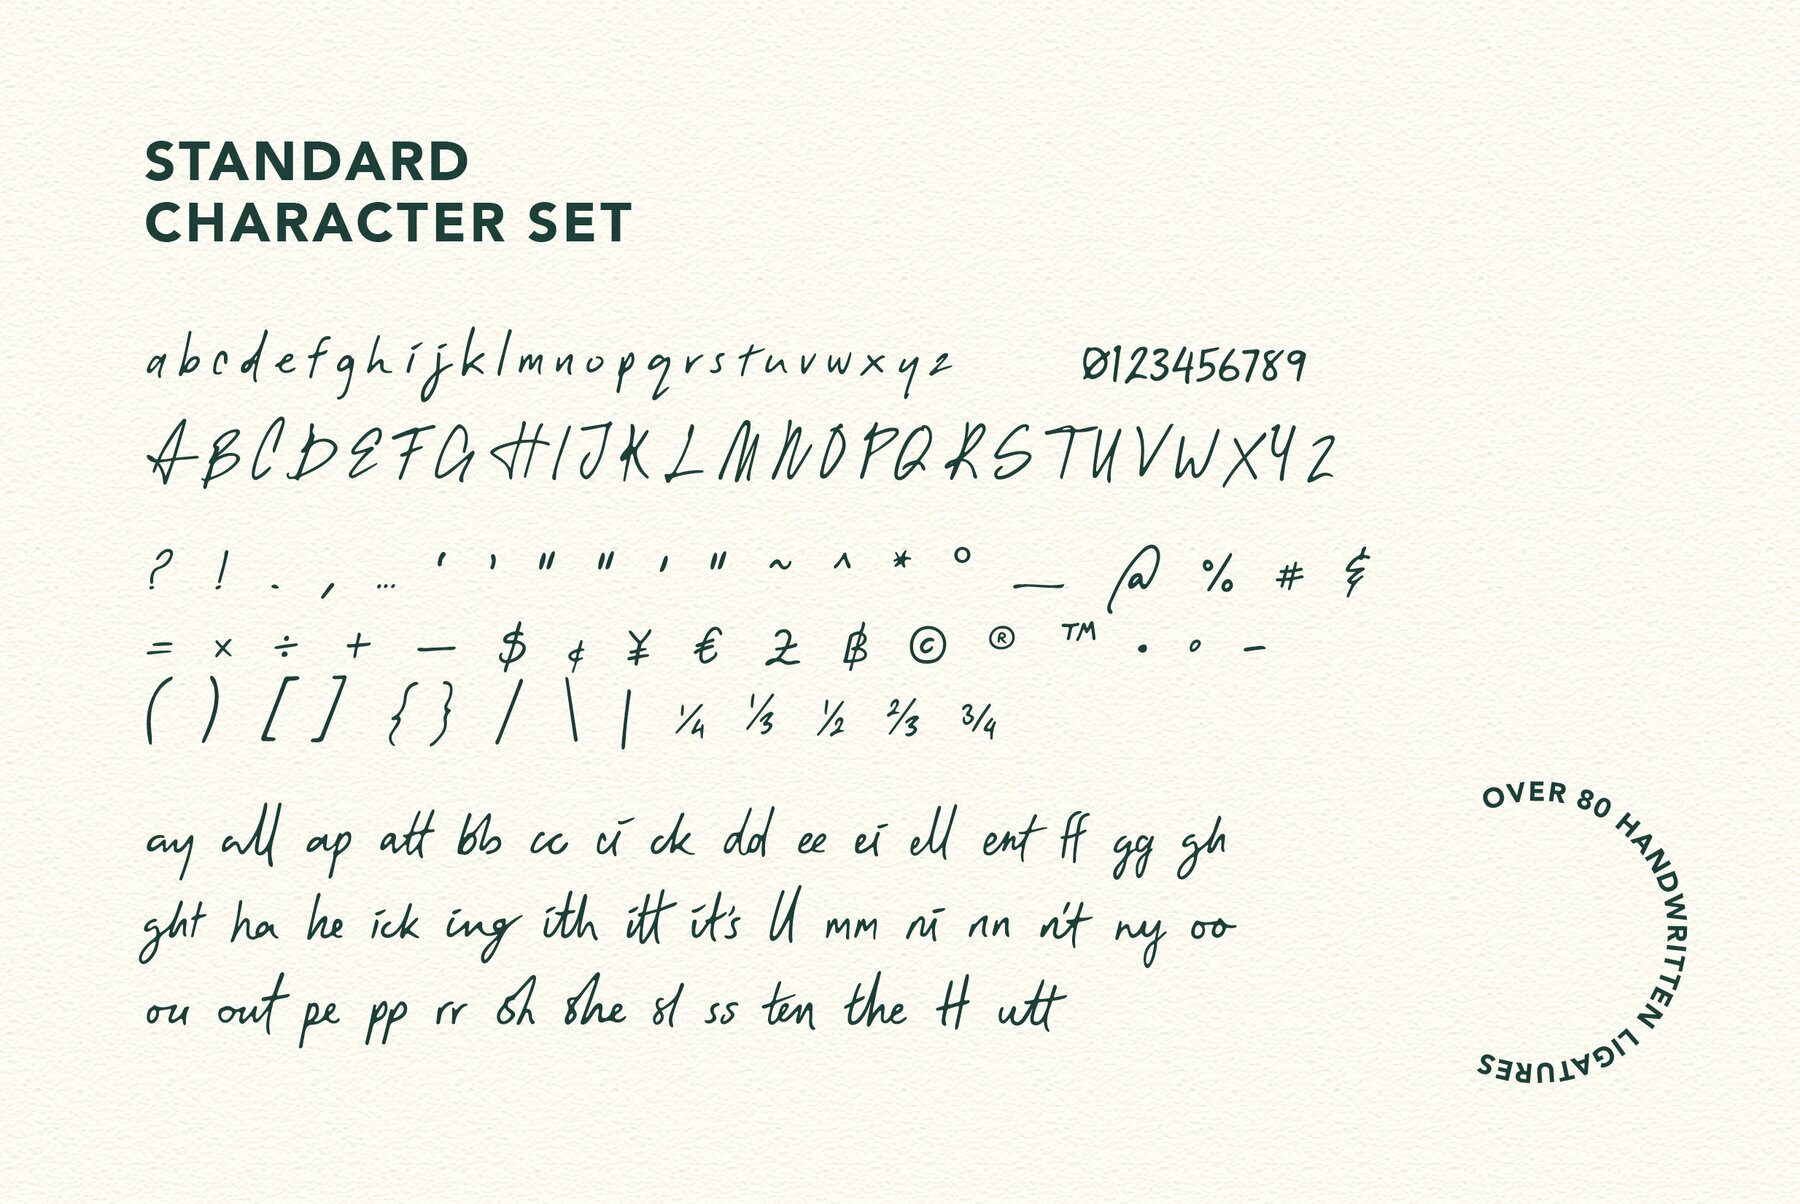 STANDARD
CHARACTER SET
a b c d e f g h i j k l m n o p q r s t u v w x y z 0123456789
A B C D E F G H I J K L M N O P Q R S T U V W X Y Z
? ! . , … ‘ ’ " " ' " ~ ^ * ° _ @ % # &
= × ÷ + — $ ¢ ¥ € £ ฿ © ® ™ • ° -
( ) [ ] { } / \ | ¼ ⅓ ½ ⅔ ¾
ay all ap att bb cc ci ck dd ee ei ell ent ff gg gh
ght ha he ick ing ith itt it's ll mm ni nn n't ny oo
ou out pe pp rr sh she sl ss ten the tt utt
OVER 80 HANDWRITTEN LIGATURES